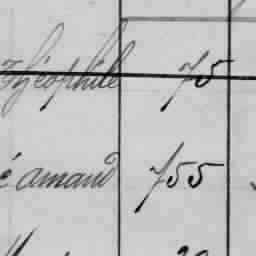 Théophile 75
é amand 755